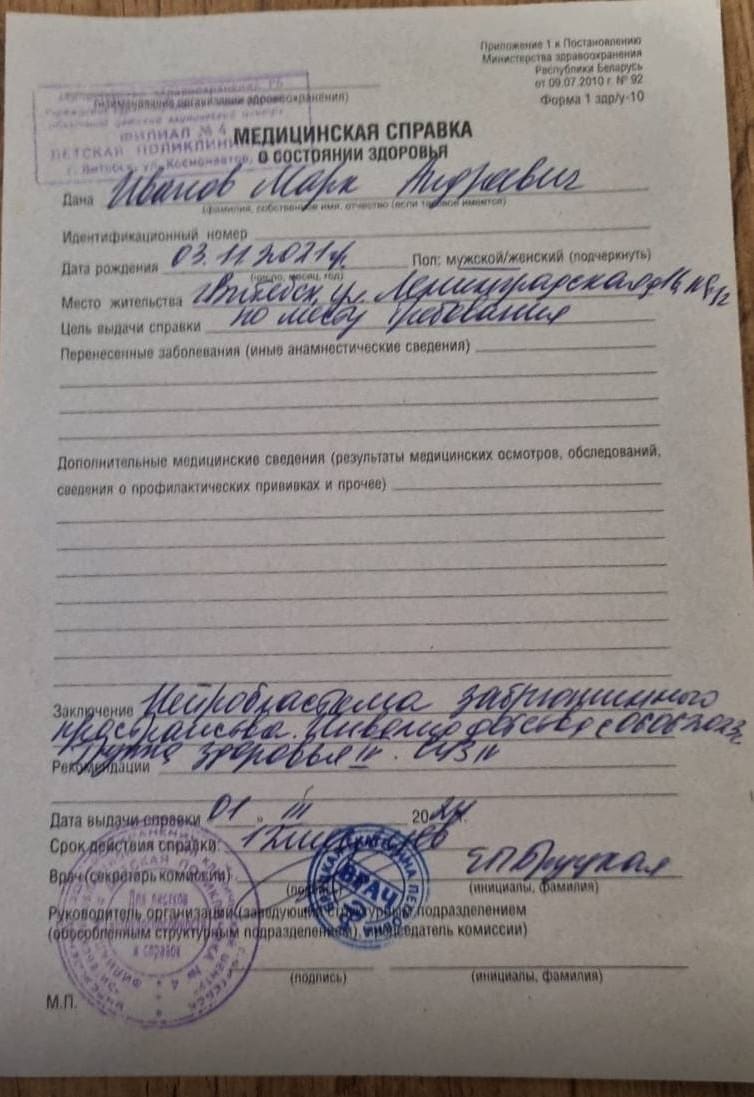 Приложение 1 к Постановлению
Министерства здравоохранения
Республики Беларусь
от 09.07.2010 г. № 92
Форма 1 здр/у-10
(наименование организации здравоохранения)
ФИЛИАЛ № 4
ДЕТСКАЯ ПОЛИКЛИНИКА
г. Витебск, ул. Космонавтов,
МЕДИЦИНСКАЯ СПРАВКА
О СОСТОЯНИИ ЗДОРОВЬЯ
Дана Иванов Марк Андреевич
(фамилия, собственное имя, отчество (если таковое имеется)
Идентификационный номер
Дата рождения 03.11.2021г. Пол: мужской/женский (подчеркнуть)
(число, месяц, год)
Место жительства г. Витебск, ул. Ленинградская
Цель выдачи справки по месту требования
Перенесенные заболевания (иные анамнестические сведения)
Дополнительные медицинские сведения (результаты медицинских осмотров, обследований,
сведения о профилактических прививках и прочее)
Заключение Нейробластома забрюшинного
пространства. Инвалид детства с
группа здоровья IV.
Рекомендации
Дата выдачи справки 01 " III 2024г.
Срок действия справки:
Врач (секретарь комиссии) Е.П. Бруцкая
(подпись) (инициалы, фамилия)
ВРАЧ
Для листков
и справок
Руководитель организации (заведующий структурным подразделением
(обособленным структурным подразделением), председатель комиссии)
(подпись) (инициалы, фамилия)
М.П.